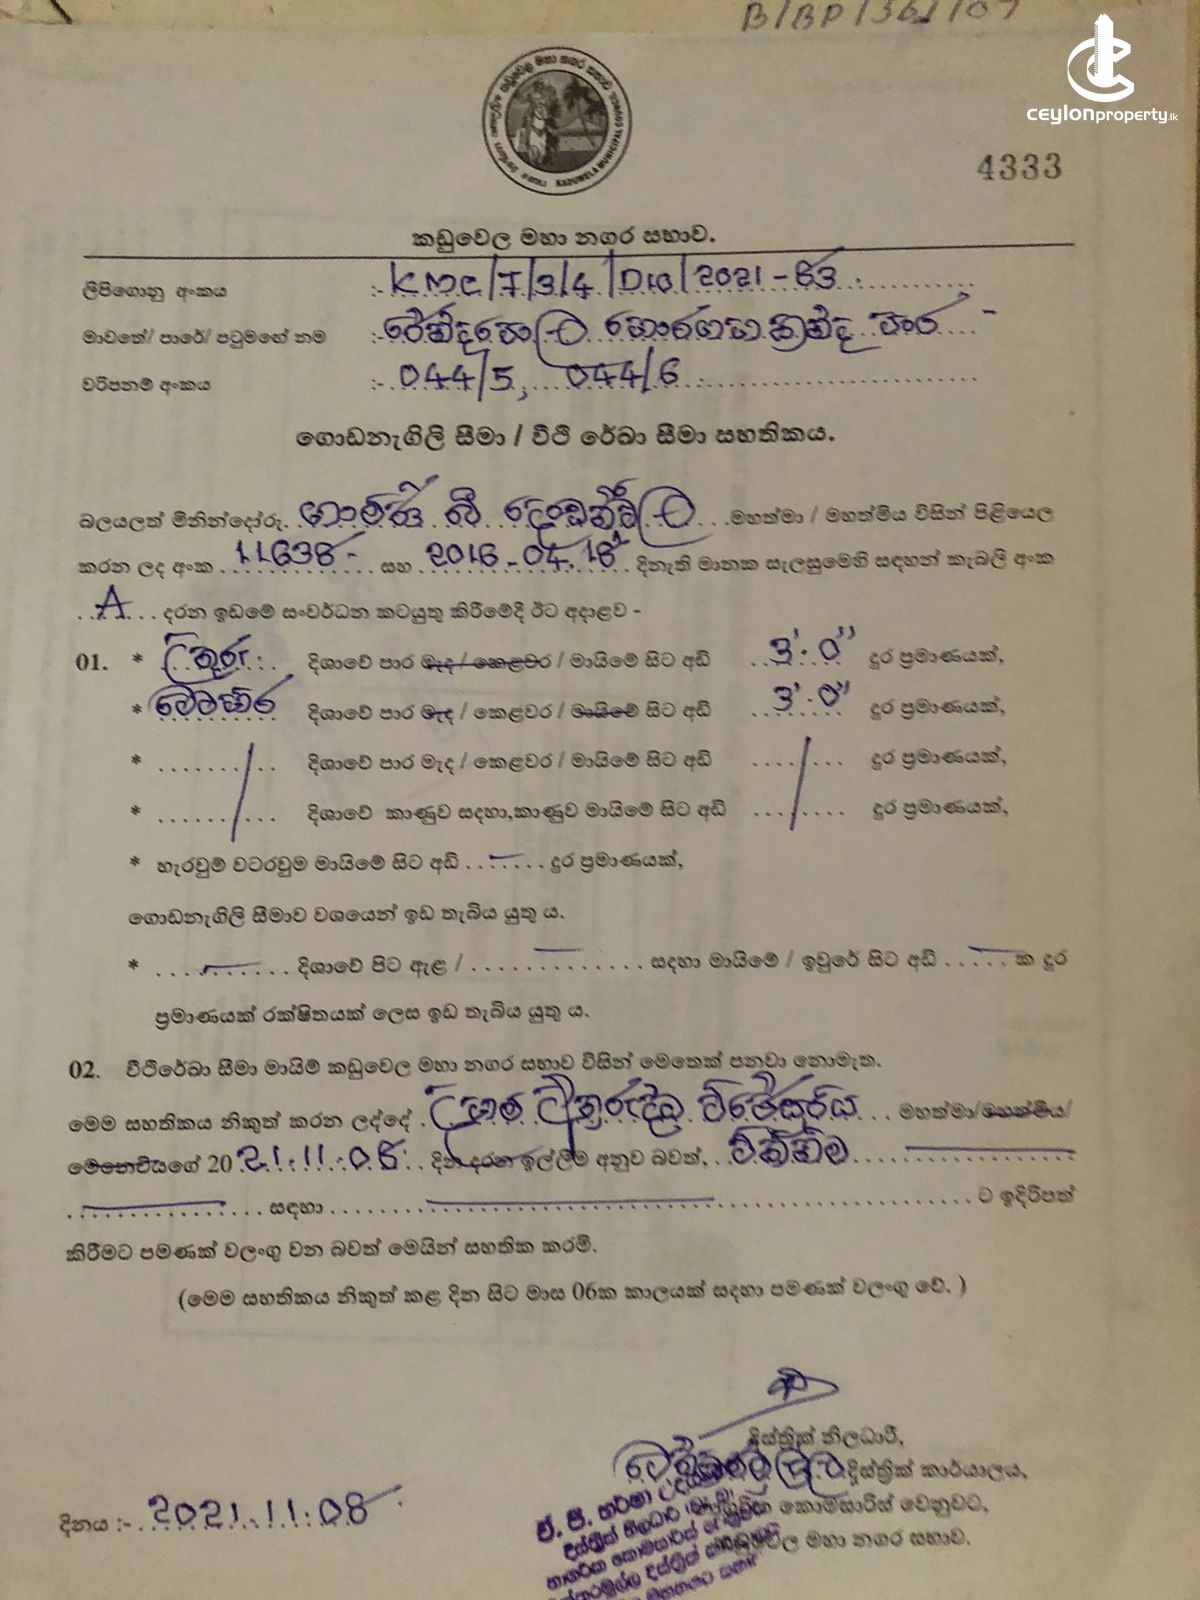 B/BP/361/07
ceylonproperty.lk
KADUWELA MUNICIPAL COUNCIL
4333
කඩුවෙල මහා නගර සභාව.
ලිපිගොනු අංකය :- KMC/7/3/4/D10/2021-83
මාවතේ/ පාරේ/ පටුමගේ නම :- හොරගහකන්ද පාර
වරිපනම් අංකය :- 044/5, 044/6
ගොඩනැගිලි සීමා / වීථි රේඛා සීමා සහතිකය.
බලයලත් මිනින්දෝරු ගාමිණී බී දොඩන්වල මහත්මා / මහත්මිය විසින් පිළියෙල
කරන ලද අංක 11638 සහ 2016-04.18 දිනැති මානක සැලසුමෙහි සඳහන් කැබලි අංක
A දරන ඉඩමේ සංවර්ධන කටයුතු කිරීමේදී ඊට අදාළව -
01. * උතුරු දිශාවේ පාර මැද / කෙළවර / මායිමේ සිට අඩි 3'.0" දුර ප්‍රමාණයක්,
* බටහිර දිශාවේ පාර මැද / කෙළවර / මායිමේ සිට අඩි 3'.0" දුර ප්‍රමාණයක්,
* ........... දිශාවේ පාර මැද / කෙළවර / මායිමේ සිට අඩි ......... දුර ප්‍රමාණයක්,
* ........... දිශාවේ කාණුව සදහා,කාණුව මායිමේ සිට අඩි ......... දුර ප්‍රමාණයක්,
* හැරවුම් වටරවුම මායිමේ සිට අඩි ....... දුර ප්‍රමාණයක්,
ගොඩනැගිලි සීමාව වශයෙන් ඉඩ තැබිය යුතු ය.
* ........... දිශාවේ පිට ඇළ / .............. සදහා මායිමේ / ඉවුරේ සිට අඩි ..... ක දුර
ප්‍රමාණයක් රක්ෂිතයක් ලෙස ඉඩ තැබිය යුතු ය.
02. වීථිරේඛා සීමා මායිම් කඩුවෙල මහා නගර සභාව විසින් මෙතෙක් පනවා නොමැත.
මෙම සහතිකය නිකුත් කරන ලද්දේ මහත්මා/මහත්මිය/
මෙනෙවියගේ 2021.11.08 දින දරන ඉල්ලීම අනුව බවත්, විකිණීම
.............. සඳහා .............. ට ඉදිරිපත්
කිරීමට පමණක් වලංගු වන බවත් මෙයින් සහතික කරමි.
(මෙම සහතිකය නිකුත් කළ දින සිට මාස 06ක කාලයක් සදහා පමණක් වලංගු වේ. )
දිස්ත්‍රික් නිලධාරී,
දිස්ත්‍රික් කාර්යාලය,
නාගරික කොමසාරිස් වෙනුවට,
කඩුවෙල මහා නගර සභාව.
දිනය :- 2021.11.08